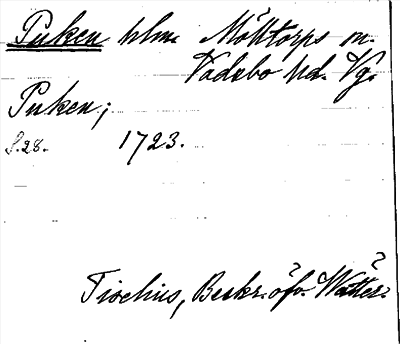 Puken hlm. Mölltorps sn.
Vadsbo hd. Vg.
Puken;
S. 28. 1723.
Tiselius, Beskr. öfv. Wätter: